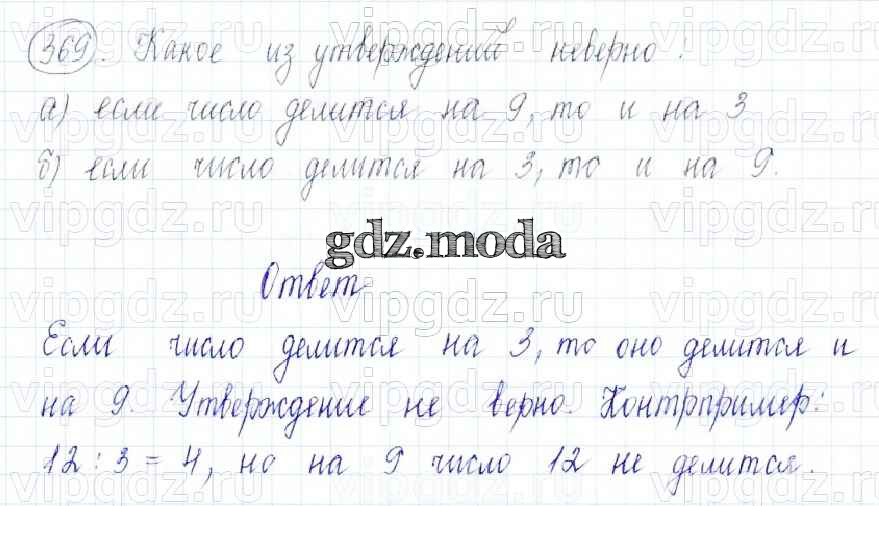 369. Какое из утверждений неверно?
а) если число делится на 9, то и на 3
б) если число делится на 3, то и на 9.
gdz.moda
Ответ
Если число делится на 3, то оно делится и
на 9. Утверждение не верно. Контрпример:
12 : 3 = 4, но на 9 число 12 не делится.
vipgdz.ru